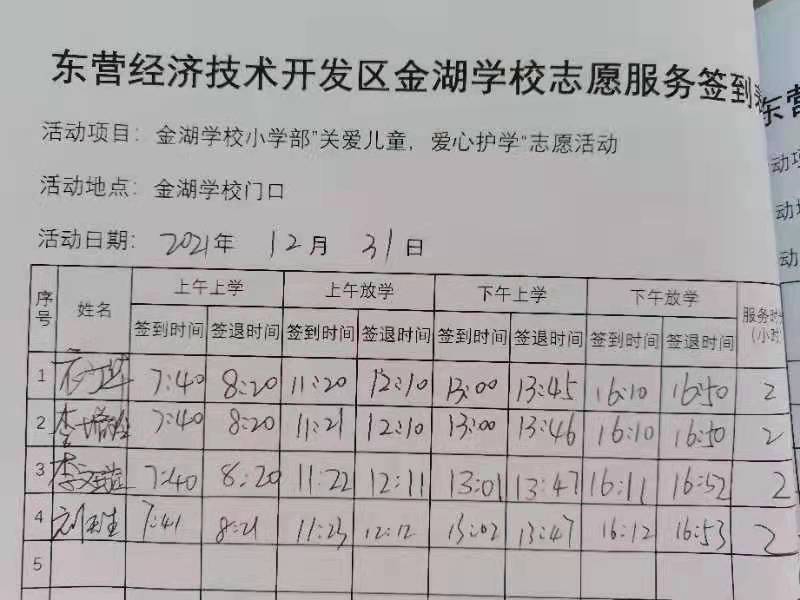 东营经济技术开发区金湖学校志愿服务签到表
活动项目：金湖学校小学部"关爱儿童，爱心护学"志愿活动
活动地点：金湖学校门口
活动日期：2021年 12月 31日
序号 姓名 上午上学 上午放学 下午上学 下午放学 服务时
签到时间 签退时间 签到时间 签退时间 签到时间 签退时间 签到时间 签退时间 (小时
1 7:40 8:20 11:20 12:10 13:00 13:45 16:10 16:50 2
2 7:40 8:20 11:21 12:10 13:00 13:46 16:10 16:50 2
3 7:40 8:20 11:22 12:11 13:01 13:47 16:11 16:52 2
4 7:41 8:21 11:23 12:12 13:02 13:47 16:12 16:53 2
5
东营
活动项
活动地
活动